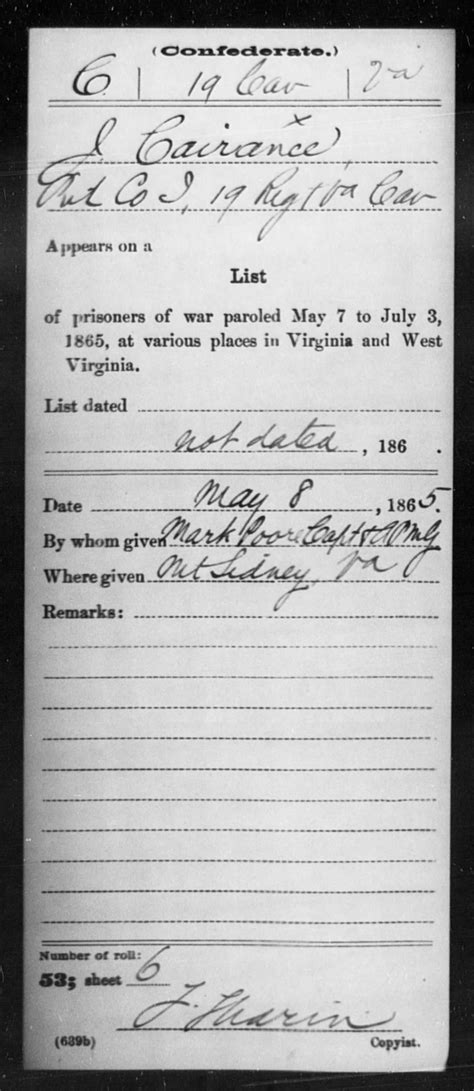 (Confederate.)
C | 19 Cav | Va
x
J. Cairance,
Pvt Co I, 19 Regt Va Cav
Appears on a
List
of prisoners of war paroled May 7 to July 3,
1865, at various places in Virginia and West
Virginia.
List dated
not dated, 186 .
Date May 8, 1865.
By whom given Mark Poore Capt & A P M G
Where given Mt Sidney, Va
Remarks:
Number of roll:
53; sheet 6
(639b) Copyist.